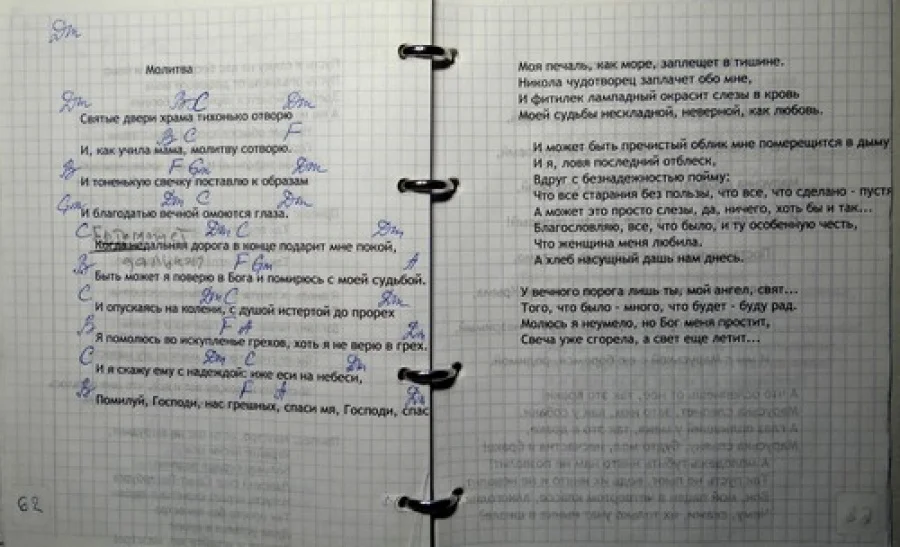 Dm
Молитва
Dm B C Dm
Святые двери храма тихонько отворю
B C F
И, как учила мама, молитву сотворю.
B F Gm Dm
И тоненькую свечку поставлю к образам
Gm Dm C Dm
И благодатью вечной омоются глаза.
C Dm C Dm
Когда недальняя дорога в конце подарит мне покой,
B F Gm A
Быть может я поверю в Бога и помирюсь с моей судьбой.
C Dm C
И опускаясь на колени, с душой истертой до прорех
B F A Dm
Я помолюсь во искупленье грехов, хоть я не верю в грех.
C Dm C Dm
И я скажу ему с надеждой: иже еси на небеси,
B F A Dm
Помилуй, Господи, нас грешных, спаси мя, Господи, спас
62
Моя печаль, как море, заплещет в тишине.
Никола чудотворец заплачет обо мне,
И фитилек лампадный окрасит слезы в кровь
Моей судьбы нескладной, неверной, как любовь.
И может быть пречистый облик мне померещится в дыму
И я, ловя последний отблеск,
Вдруг с безнадежностью пойму:
Что все старания без пользы, что все, что сделано - пустя
А может это просто слезы, да, ничего, хоть бы и так...
Благословляю, все, что было, и ту особенную честь,
Что женщина меня любила.
А хлеб насущный дашь нам днесь.
У вечного порога лишь ты, мой ангел, свят...
Того, что было - много, что будет - буду рад.
Молюсь я неумело, но Бог меня простит,
Свеча уже сгорела, а свет еще летит...